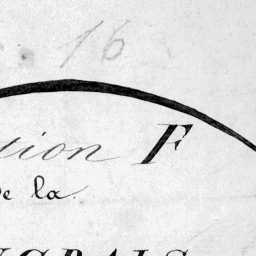 16
sion F
de la
NGRAIS